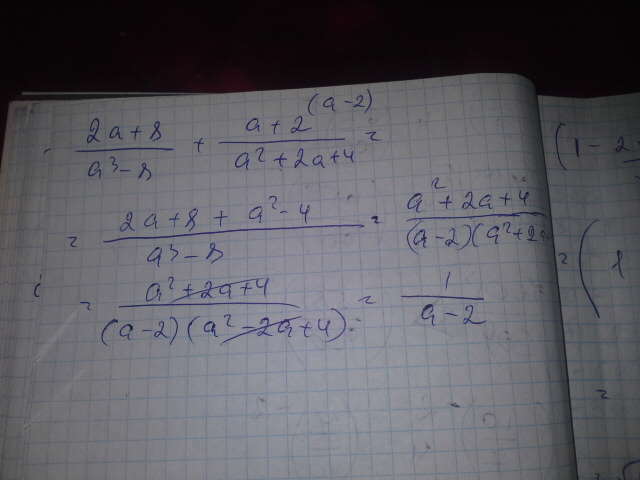 (a-2)
2a+8 / a³-8 + a+2 / a²+2a+4 =
= 2a+8+a²-4 / a³-8 = a²+2a+4 / (a-2)(a²+2a
= a²+2a+4 / (a-2)(a²-2a+4) = 1 / a-2
(1-2
= ( 1
=